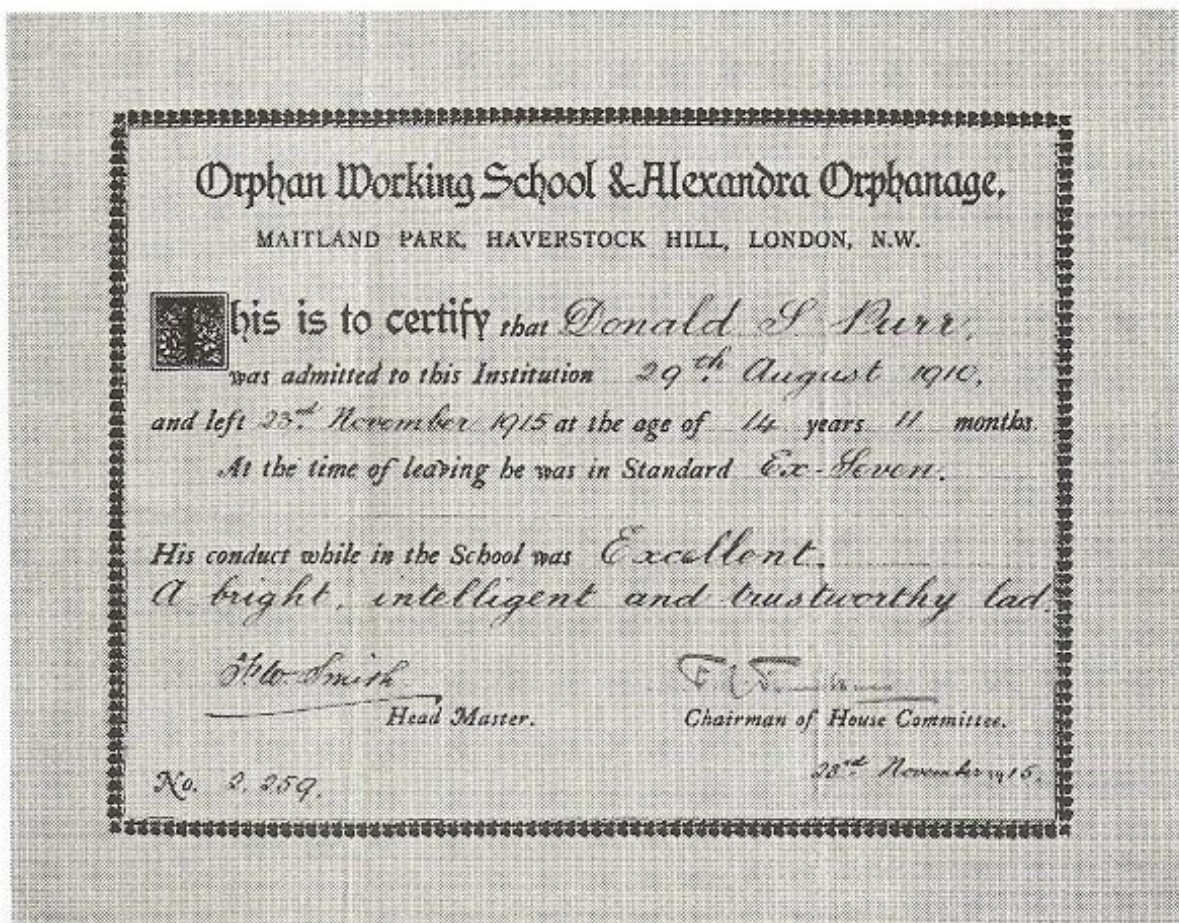 Orphan Working School & Alexandra Orphanage,
MAITLAND PARK, HAVERSTOCK HILL, LONDON, N.W.
This is to certify that Donald S Purr,
was admitted to this Institution 29th August 1910,
and left 23rd November 1915 at the age of 14 years 11 months.
At the time of leaving he was in Standard Ex-Seven.
His conduct while in the School was Excellent.
A bright, intelligent and trustworthy lad.
F.W. Smith
Head Master.
Chairman of House Committee.
23rd November 1915.
No. 2,259.